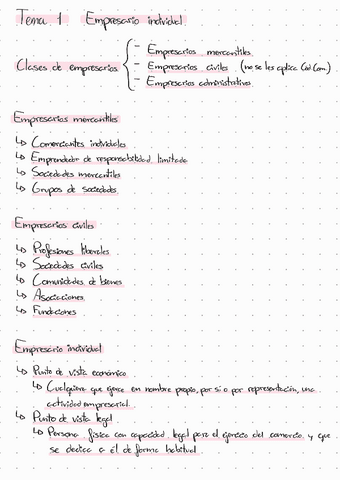 Tema 1 Empresario individual
Clases de empresarios
- Empresarios mercantiles
- Empresarios civiles (no se les aplica Cod.Com.)
- Empresarios administrativos
Empresarios mercantiles
↳ Comerciantes individuales
↳ Emprendedor de responsabilidad limitada
↳ Sociedades mercantiles
↳ Grupos de sociedades
Empresarios civiles
↳ Profesiones liberales
↳ Sociedades civiles
↳ Comunidades de bienes
↳ Asociaciones
↳ Fundaciones
Empresario individual
↳ Punto de vista económico
↳ Cualquiera que ejerce en nombre propio, por si o por representación, una
actividad empresarial.
↳ Punto de vista legal
↳ Persona física con capacidad legal para el ejercicio del comercio y que
se dedica a él de forma habitual